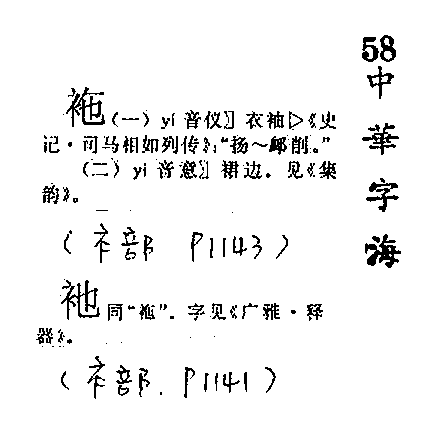 58
中華字海
袘(一)yí音仪〗衣袖▷《史
记·司马相如列传》:“扬～邮削。”
(二)yì音意〗裙边。见《集
韵》。
(衤部 P1143)
衪同“袘”。字见《广雅·释
器》。
(衤部.P1141)